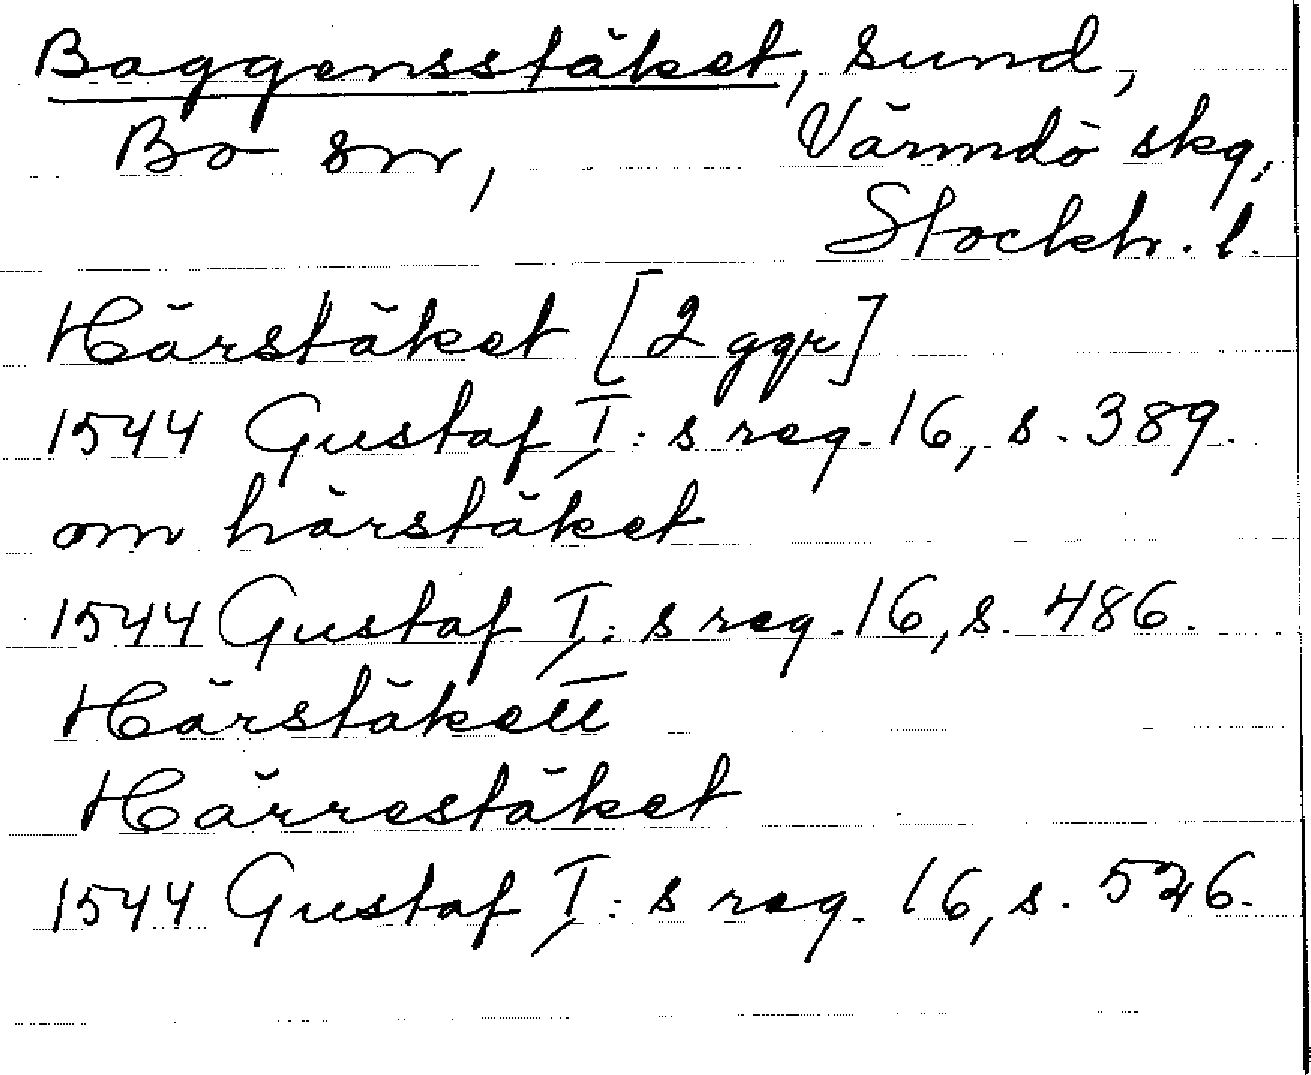 Baggensstäket, sund,
Bo sn, Värmdö skg,
Stockh. l.
Härstäket [2 ggr]
1544 Gustaf I:s reg. 16, s. 389.
om härstäket
1544 Gustaf I:s reg. 16, s. 486.
Härstäkett
Härrestäket
1544 Gustaf I:s reg. 16, s. 526.